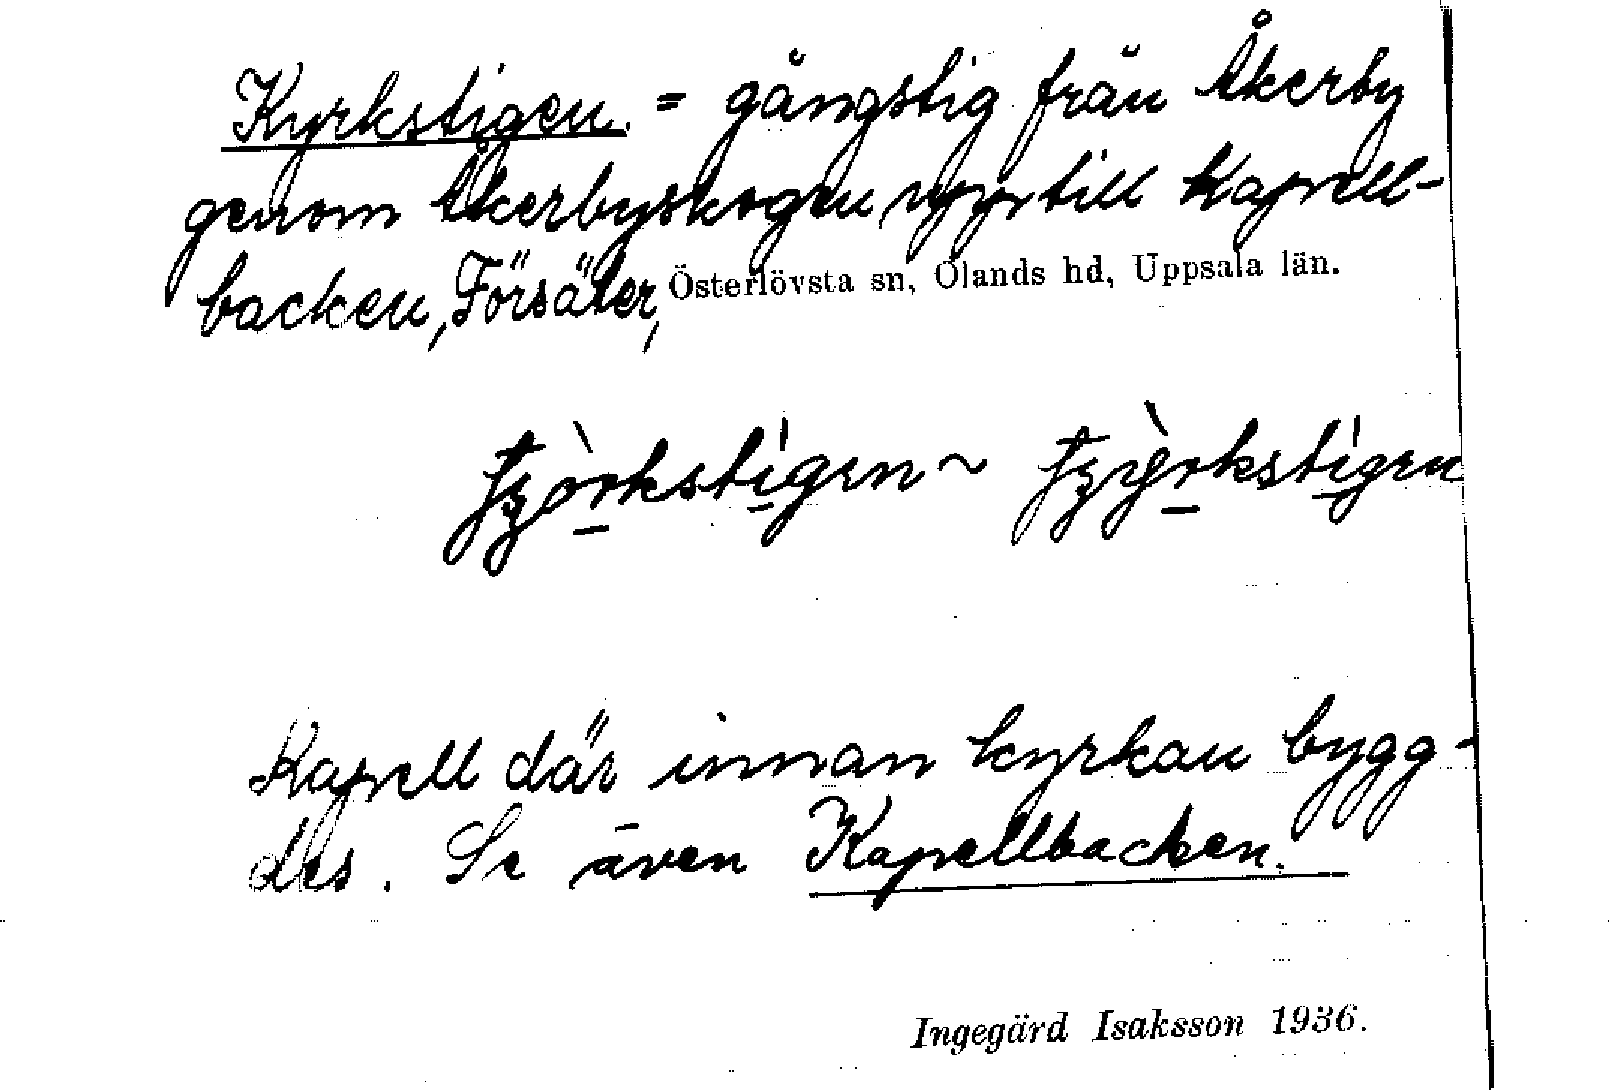 Kyrkstigen. = gångstig från Åkerby
genom Åkerbyskogen upp till Kapell-
backen, Försäter, Österlövsta sn, Olands hd, Uppsala län.
Kapell där innan kyrkan bygg-
des. Se även Kapellbacken.
Ingegärd Isaksson 1936.